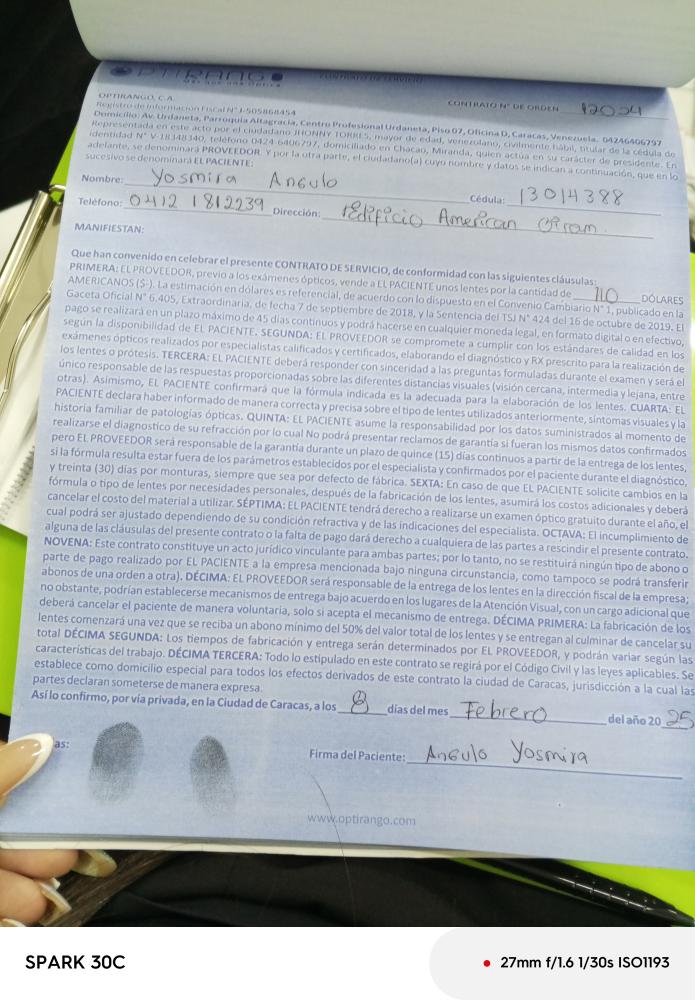 OPTIRANGO
CONTRATO DE SERVICIO
OPTIRANGO, C.A.
CONTRATO N° DE ORDEN 12024
Registro de Información Fiscal N° J-505868454
Domicilio: Av. Urdaneta, Parroquia Altagracia, Centro Profesional Urdaneta, Piso 07, Oficina D, Caracas, Venezuela. 04246406797
Representada en este acto por el ciudadano JHONNY TORRES, mayor de edad, venezolano, civilmente hábil, titular de la cédula de
identidad N° V-18348340, teléfono 0424-6406797, domiciliado en Chacao, Miranda, quien actúa en su carácter de presidente. En
adelante, se denominará PROVEEDOR. Y por la otra parte, el ciudadano(a) cuyo nombre y datos se indican a continuación, que en lo
sucesivo se denominará EL PACIENTE:
Nombre: Yosmira Angulo Cédula: 13014388
Teléfono: 0412 1812239 Dirección: Edificio American
MANIFIESTAN:
Que han convenido en celebrar el presente CONTRATO DE SERVICIO, de conformidad con las siguientes cláusulas:
PRIMERA: EL PROVEEDOR, previo a los exámenes ópticos, vende a EL PACIENTE unos lentes por la cantidad de 110 DÓLARES
AMERICANOS ($-). La estimación en dólares es referencial, de acuerdo con lo dispuesto en el Convenio Cambiario N° 1, publicado en la
Gaceta Oficial N° 6.405, Extraordinaria, de fecha 7 de septiembre de 2018, y la Sentencia del TSJ N° 424 del 16 de octubre de 2019. El
pago se realizará en un plazo máximo de 45 días continuos y podrá hacerse en cualquier moneda legal, en formato digital o en efectivo,
según la disponibilidad de EL PACIENTE. SEGUNDA: EL PROVEEDOR se compromete a cumplir con los estándares de calidad en los
exámenes ópticos realizados por especialistas calificados y certificados, elaborando el diagnóstico y RX prescrito para la realización de
los lentes o prótesis. TERCERA: EL PACIENTE deberá responder con sinceridad a las preguntas formuladas durante el examen y será el
único responsable de las respuestas proporcionadas sobre las diferentes distancias visuales (visión cercana, intermedia y lejana, entre
otras). Asimismo, EL PACIENTE confirmará que la fórmula indicada es la adecuada para la elaboración de los lentes. CUARTA: EL
PACIENTE declara haber informado de manera correcta y precisa sobre el tipo de lentes utilizados anteriormente, síntomas visuales y la
historia familiar de patologías ópticas. QUINTA: EL PACIENTE asume la responsabilidad por los datos suministrados al momento de
realizarse el diagnostico de su refracción por lo cual No podrá presentar reclamos de garantía si fueran los mismos datos confirmados
pero EL PROVEEDOR será responsable de la garantía durante un plazo de quince (15) días continuos a partir de la entrega de los lentes,
si la fórmula resulta estar fuera de los parámetros establecidos por el especialista y confirmados por el paciente durante el diagnóstico,
y treinta (30) días por monturas, siempre que sea por defecto de fábrica. SEXTA: En caso de que EL PACIENTE solicite cambios en la
fórmula o tipo de lentes por necesidades personales, después de la fabricación de los lentes, asumirá los costos adicionales y deberá
cancelar el costo del material a utilizar. SÉPTIMA: EL PACIENTE tendrá derecho a realizarse un examen óptico gratuito durante el año, el
cual podrá ser ajustado dependiendo de su condición refractiva y de las indicaciones del especialista. OCTAVA: El incumplimiento de
alguna de las cláusulas del presente contrato o la falta de pago dará derecho a cualquiera de las partes a rescindir el presente contrato.
NOVENA: Este contrato constituye un acto jurídico vinculante para ambas partes; por lo tanto, no se restituirá ningún tipo de abono o
parte de pago realizado por EL PACIENTE a la empresa mencionada bajo ninguna circunstancia, como tampoco se podrá transferir
abonos de una orden a otra). DÉCIMA: EL PROVEEDOR será responsable de la entrega de los lentes en la dirección fiscal de la empresa;
no obstante, podrían establecerse mecanismos de entrega bajo acuerdo en los lugares de la Atención Visual, con un cargo adicional que
deberá cancelar el paciente de manera voluntaria, solo si acepta el mecanismo de entrega. DÉCIMA PRIMERA: La fabricación de los
lentes comenzará una vez que se reciba un abono mínimo del 50% del valor total de los lentes y se entregan al culminar de cancelar su
total DÉCIMA SEGUNDA: Los tiempos de fabricación y entrega serán determinados por EL PROVEEDOR, y podrán variar según las
características del trabajo. DÉCIMA TERCERA: Todo lo estipulado en este contrato se regirá por el Código Civil y las leyes aplicables. Se
establece como domicilio especial para todos los efectos derivados de este contrato la ciudad de Caracas, jurisdicción a la cual las
partes declaran someterse de manera expresa.
Así lo confirmo, por vía privada, en la Ciudad de Caracas, a los 8 días del mes Febrero del año 2025
as:
Firma del Paciente: Angulo Yosmira
www.optirango.com
SPARK 30C
27mm f/1.6 1/30s ISO1193